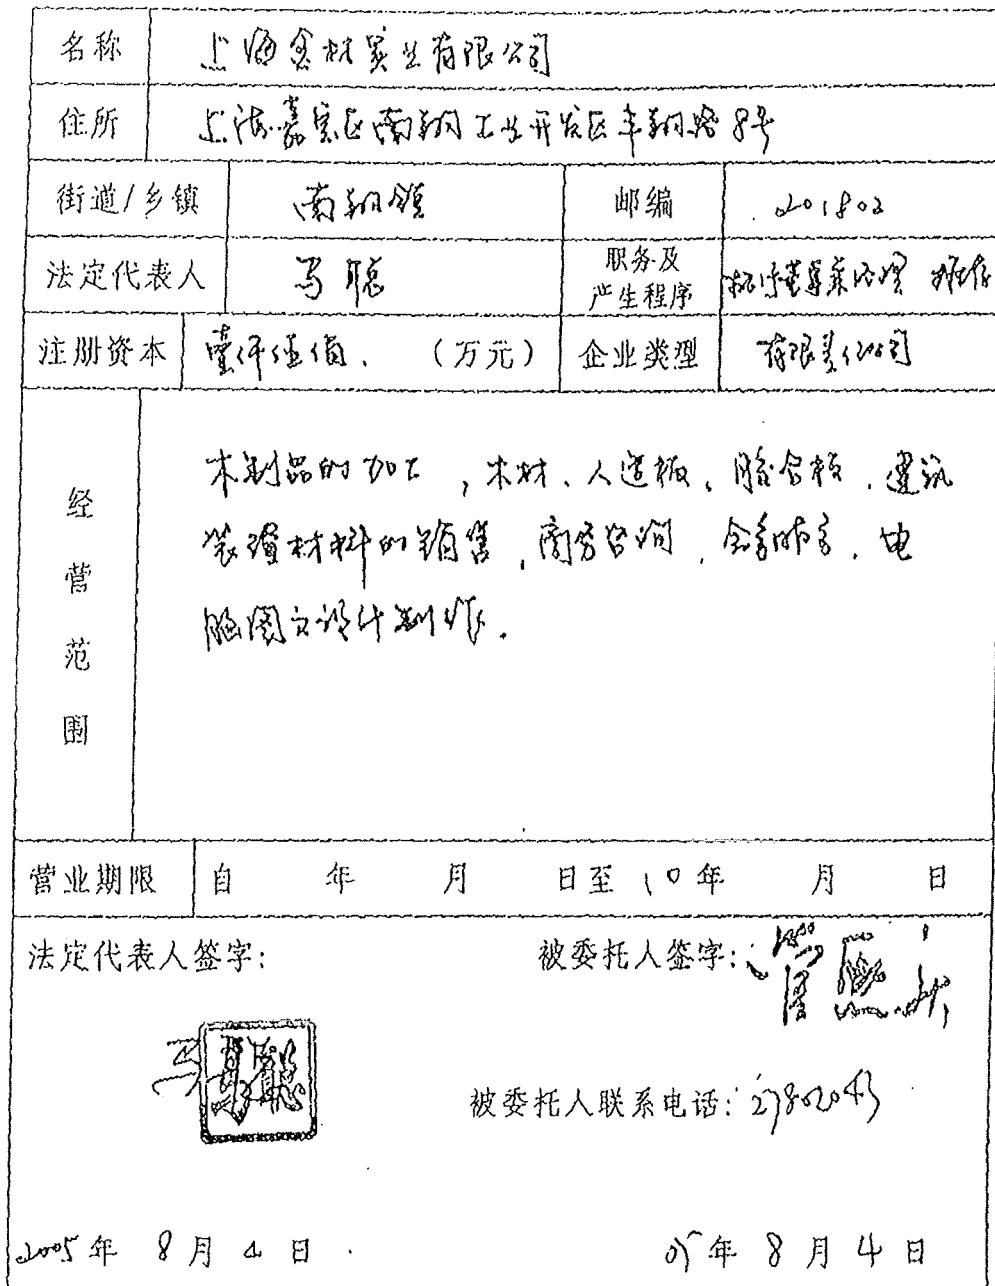 名称 上海金材实业有限公司
住所 上海嘉定区南翔工业开发区丰翔路8号
街道/乡镇 南翔镇 邮编 201802
法定代表人 马聪 职务及产生程序 执行董事兼经理 推荐
注册资本 壹仟伍佰 (万元) 企业类型 有限责任公司
经营范围
木制品的加工,木材、人造板、胶合板、建筑
装潢材料的销售,商务咨询,会务服务,电
脑图文设计制作.
营业期限 自 年 月 日至 10年 月 日
法定代表人签字: 被委托人签字:
马聪
被委托人联系电话:
2005年 8月 4日 05年 8月 4日